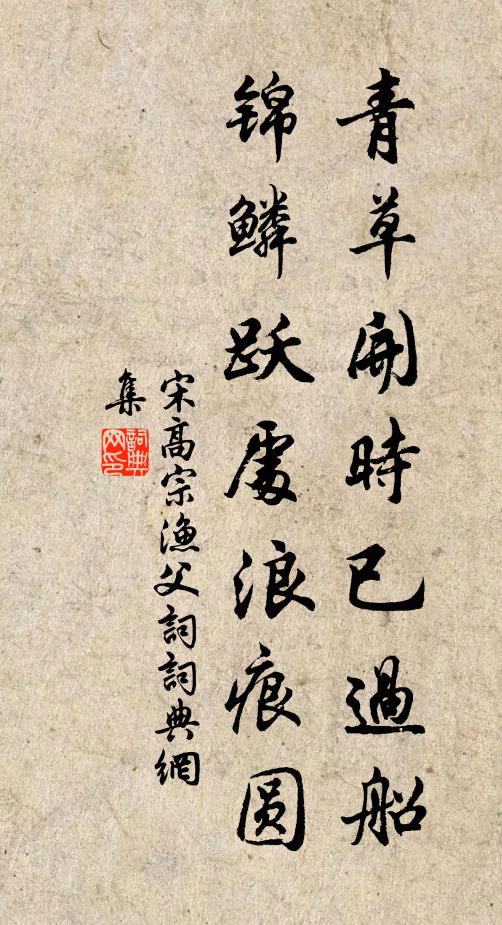 青草開時已過船
锦鳞跃處浪痕圆
宋高宗漁父詞詞典網
集
詞典網印